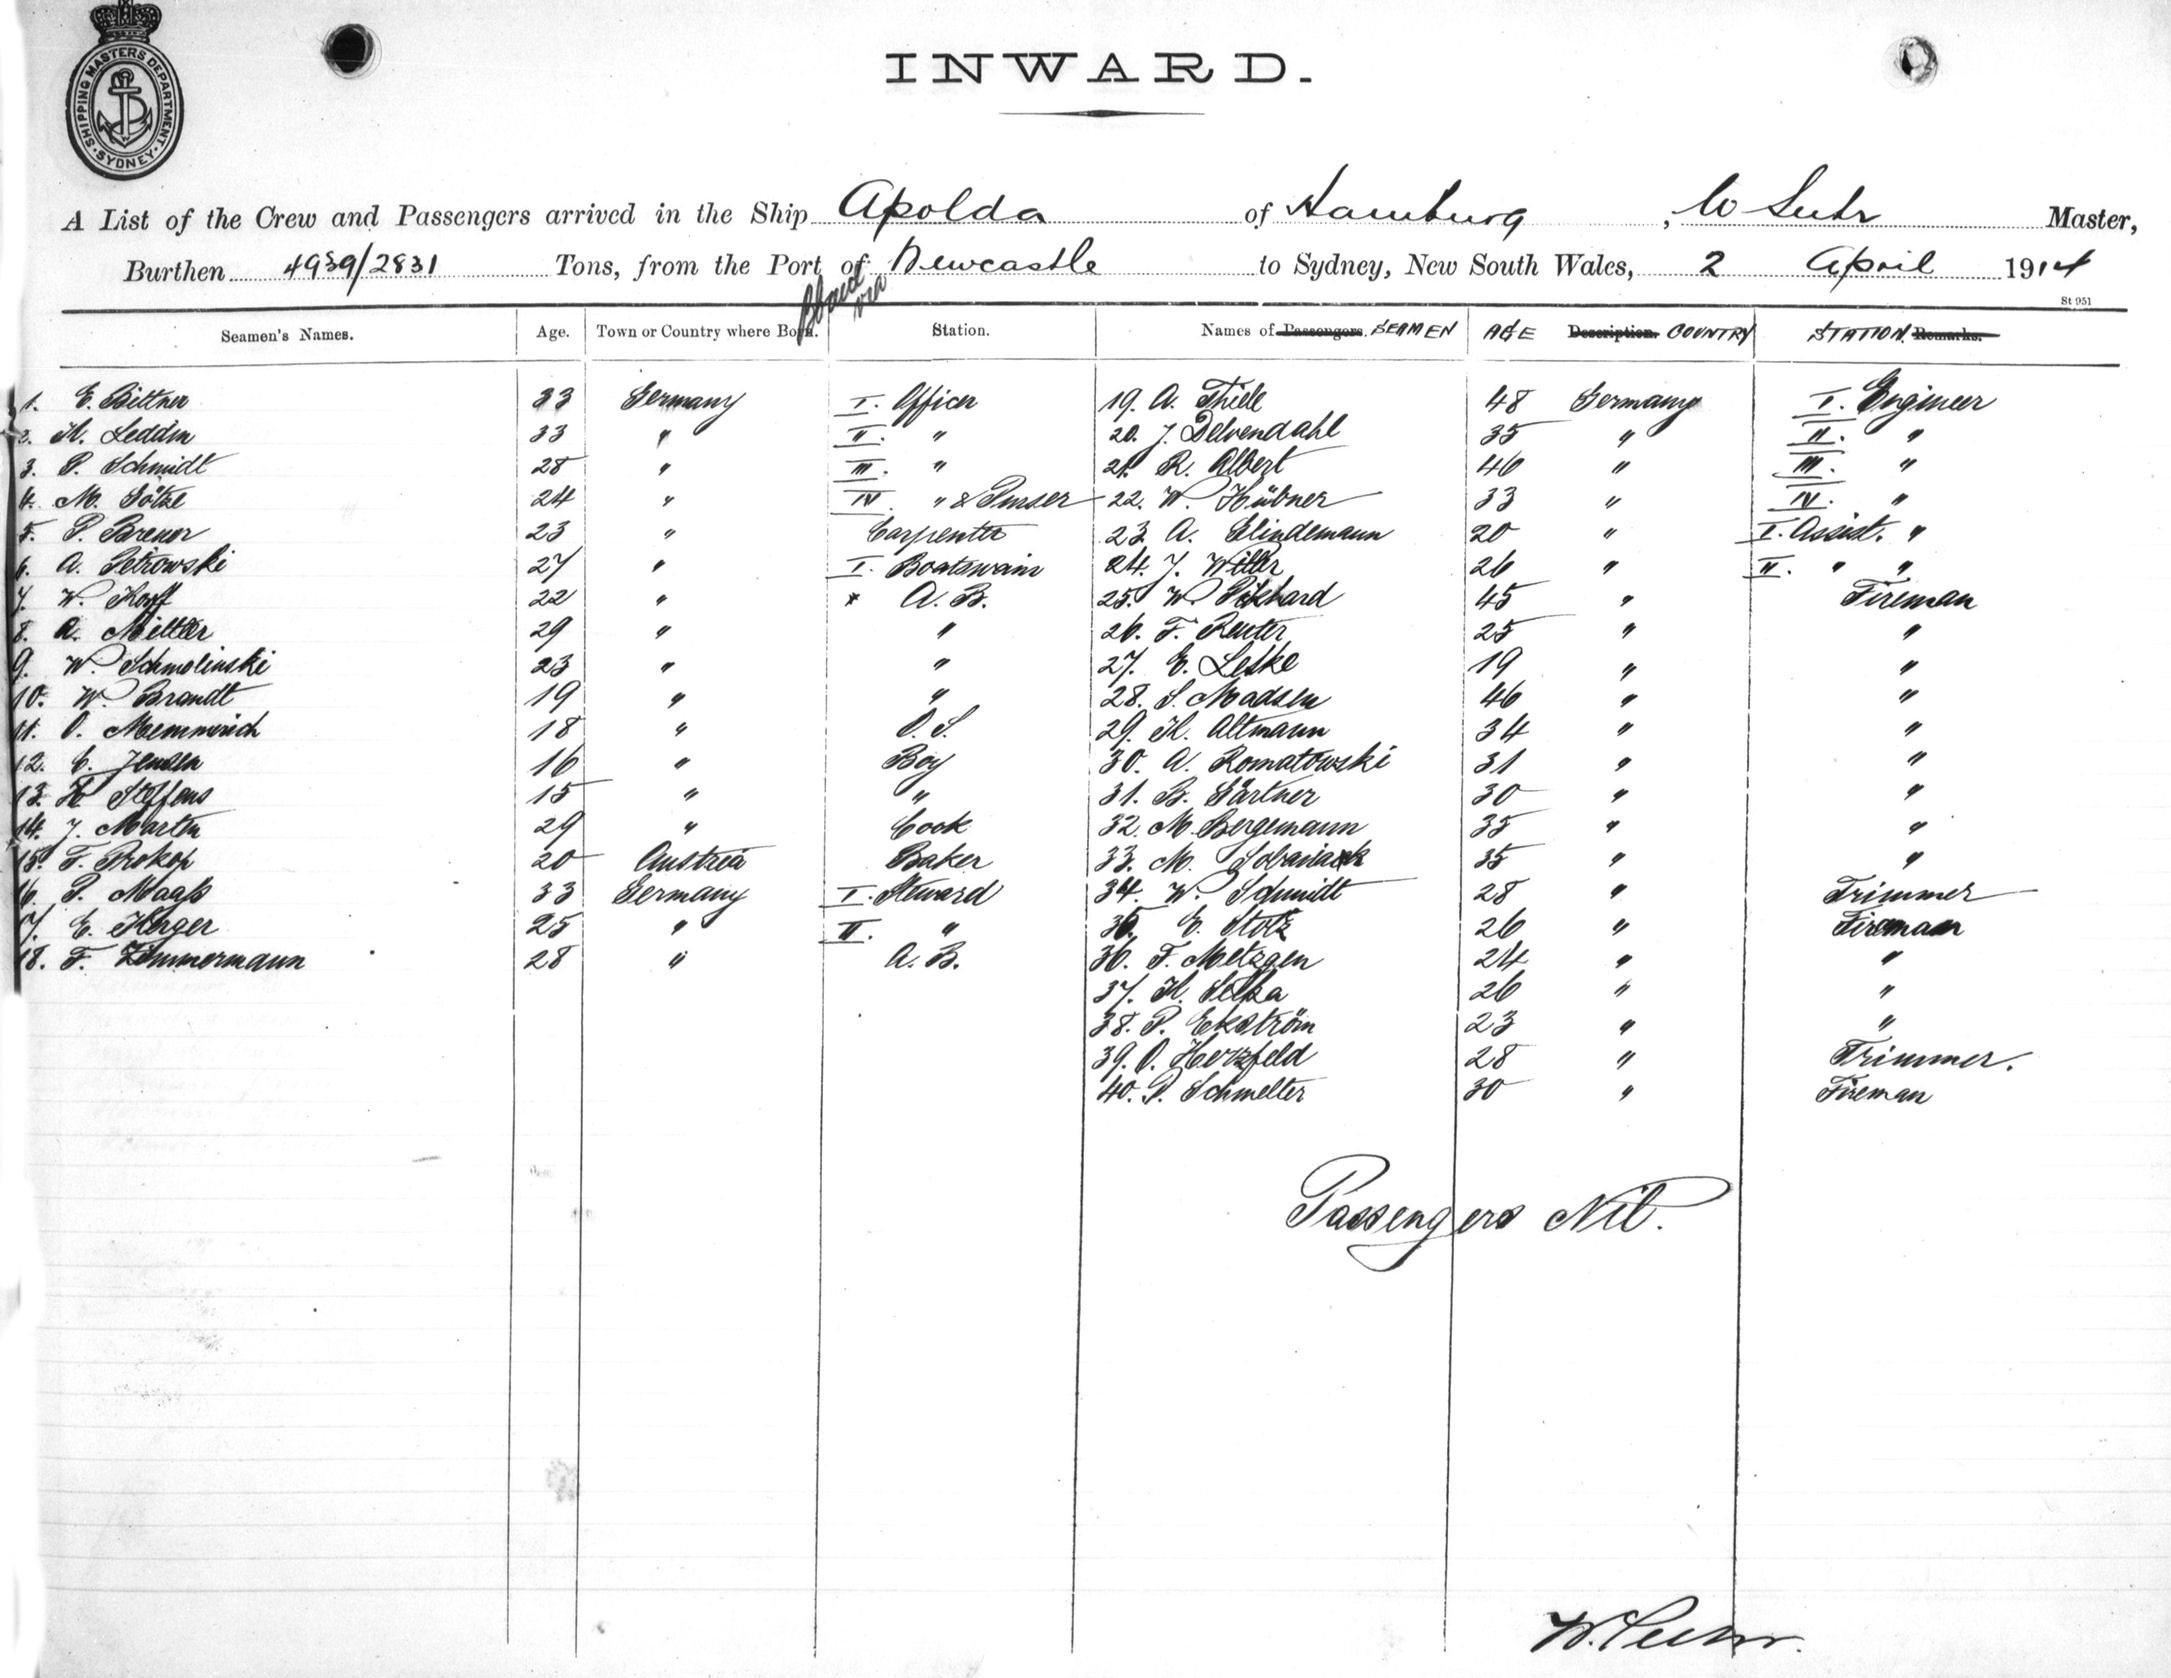 SHIPPING MASTERS DEPARTMENT · SYDNEY ·
INWARD.
A List of the Crew and Passengers arrived in the Ship Apolda of Hamburg, W Suhr Master,
Burthen 4939/2831 Tons, from the Port of Newcastle to Sydney, New South Wales, 2 April 1914
via
St 951
Seamen's Names. Age. Town or Country where Born. Station. Names of Passengers. SEAMEN AGE Description. COUNTRY STATION Remarks.
1. E. Bittner 33 Germany I. Officer 19. A. Thiele 48 Germany I. Engineer
2. H. Leddin 33 " II. " 20. J. Delvendahl 35 " II. "
3. P. Schmidt 28 " III. " 21. R. Albert 46 " III. "
4. M. Götze 24 " IV " & Purser 22. W. Hübner 33 " IV. "
5. P. Brener 23 " Carpenter 23. A. Glindemann 20 " I. Assist. "
6. A. Petrowski 27 " I. Boatswain 24. J. Witter 26 " II. " "
7. W. Korff 22 " A. B. 25. W. 45 " Fireman
8. A. 29 " " 26. F. Reuter 25 " "
9. W. Schmolinski 23 " " 27. E. Leske 19 " "
10. W. Brandt 19 " " 28. S. Madsen 46 " "
11. O. Memmerich 18 " O. S. 29. H. Altmann 34 " "
12. E. Jensen 16 " Boy 30. A. Romatowski 31 " "
13. H Steffens 15 " " 31. B. Gärtner 30 " "
14. J. Martin 29 " Cook 32. M. Bergemann 35 " "
15. F. Prokop 20 Austria Baker 33. M. 35 " "
16. P. Maaß 33 Germany I. Steward 34. W. Schmidt 28 " Trimmer
17. E. Kerger 25 " II. " 35. E. Stolz 26 " Fireman
18. F. Zimmermann 28 " A. B. 36. F. Metzgen 24 " "
37. H. 26 " "
38. P. Ekström 23 " "
39. O. Herzfeld 28 " Trimmer.
40. P. Schmelter 30 " Fireman
Passengers Nil.
W. Suhr.